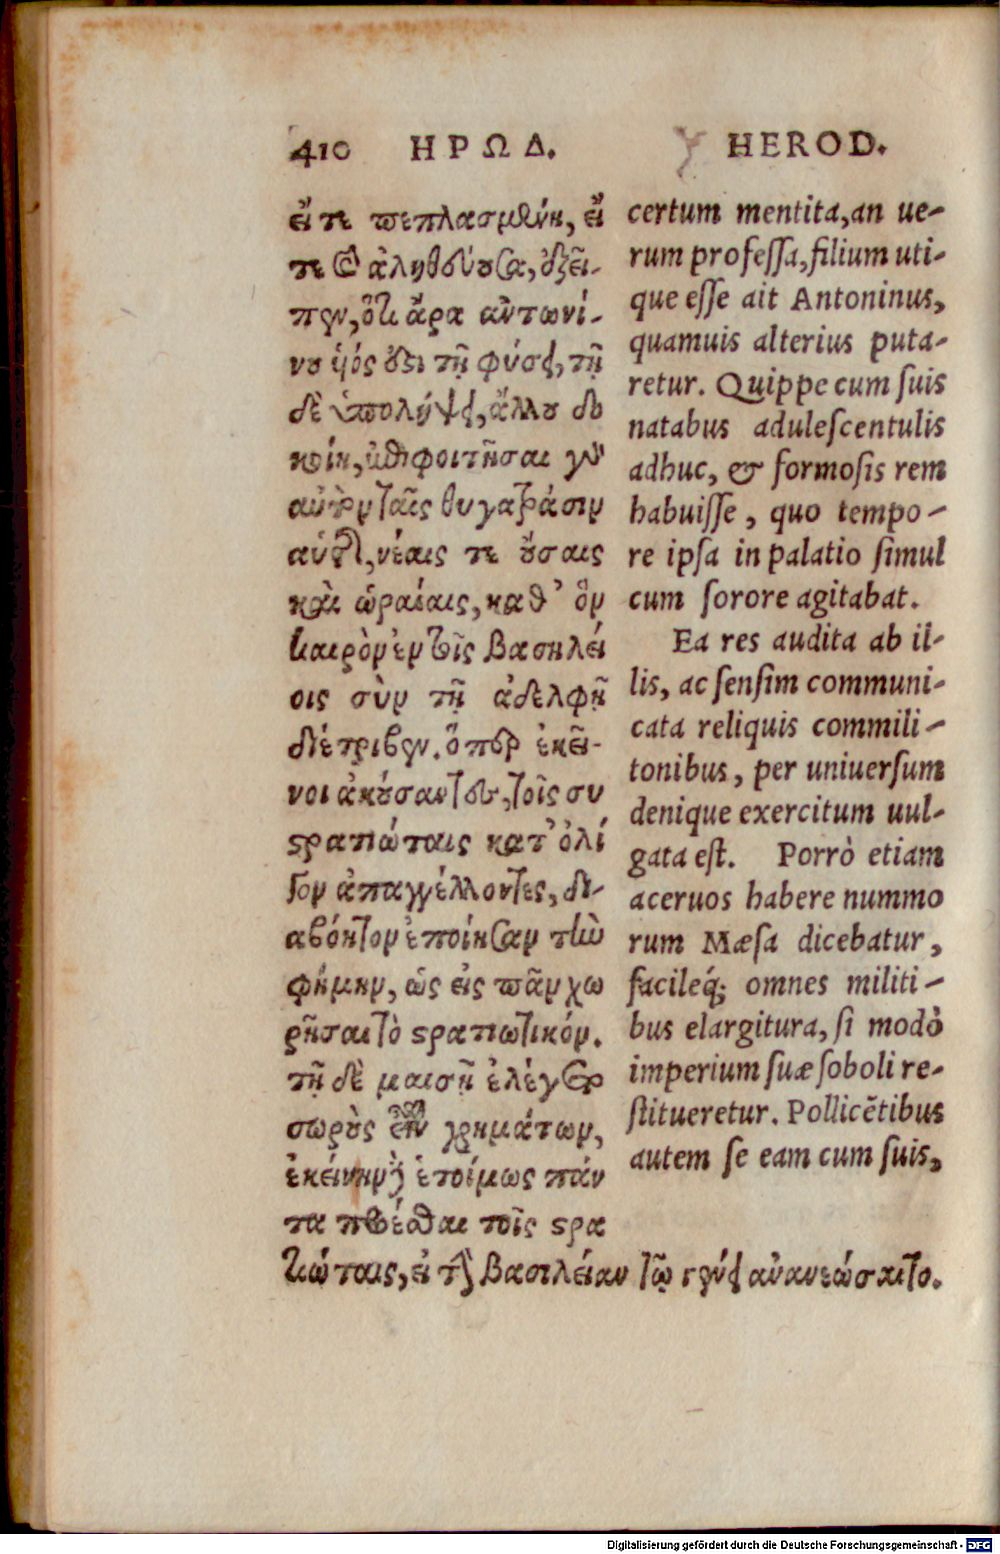 410 ΗΡΩΔ.
εἴ τε πεπλασμένη, εἴ
τε καὶ ἀληθεύουσα, ἐξεῖ-
πεν, ὅτι ἄρα ἀντωνί-
νου υἱός ἐστι τῇ φύσει, τῇ
δὲ ὑπολήψει, ἄλλου δο
κοίη, ἐπιφοιτῆσαι γὰρ
αὐτὸν ταῖς θυγατράσιν
αὐτῆς, νέαις τε οὔσαις
καὶ ὡραίαις, καθ' ὃν
καιρὸν ἐν τοῖς βασηλεί
οις σὺν τῇ ἀδελφῇ
διέτριβεν. ὅπερ ἐκεῖ-
νοι ἀκούσαντες, τοῖς συ
στρατιώταις κατ' ὀλί
γον ἀπαγγέλλοντες, δι-
αβόητον ἐποίησαν τὴν
φήμην, ὡς εἰς πᾶν χω
ρῆσαι τὸ στρατιωτικόν.
τῇ δὲ μαισῇ ἐλέγετο
σωροὺς εἶναι χρημάτων,
ἐκείνην δὲ ἑτοίμως πάν
τα προέσθαι τοῖς στρα
τιώταις, εἰ τὴν βασιλείαν τῷ γένει ἀνανεώσαιτο.
HEROD.
certum mentita, an ue-
rum professa, filium uti-
que esse ait Antoninus,
quamuis alterius puta-
retur. Quippe cum suis
natabus adulescentulis
adhuc, & formosis rem
habuisse, quo tempo-
re ipsa in palatio simul
cum sorore agitabat.
Ea res audita ab il-
lis, ac sensim communi-
cata reliquis commili-
tonibus, per uniuersum
denique exercitum uul-
gata est. Porrò etiam
aceruos habere nummo
rum Mæsa dicebatur,
facileq́; omnes militi-
bus elargitura, si modò
imperium suæ soboli re-
stitueretur. Pollicētibus
autem se eam cum suis,
Digitalisierung gefördert durch die Deutsche Forschungsgemeinschaft - DFG